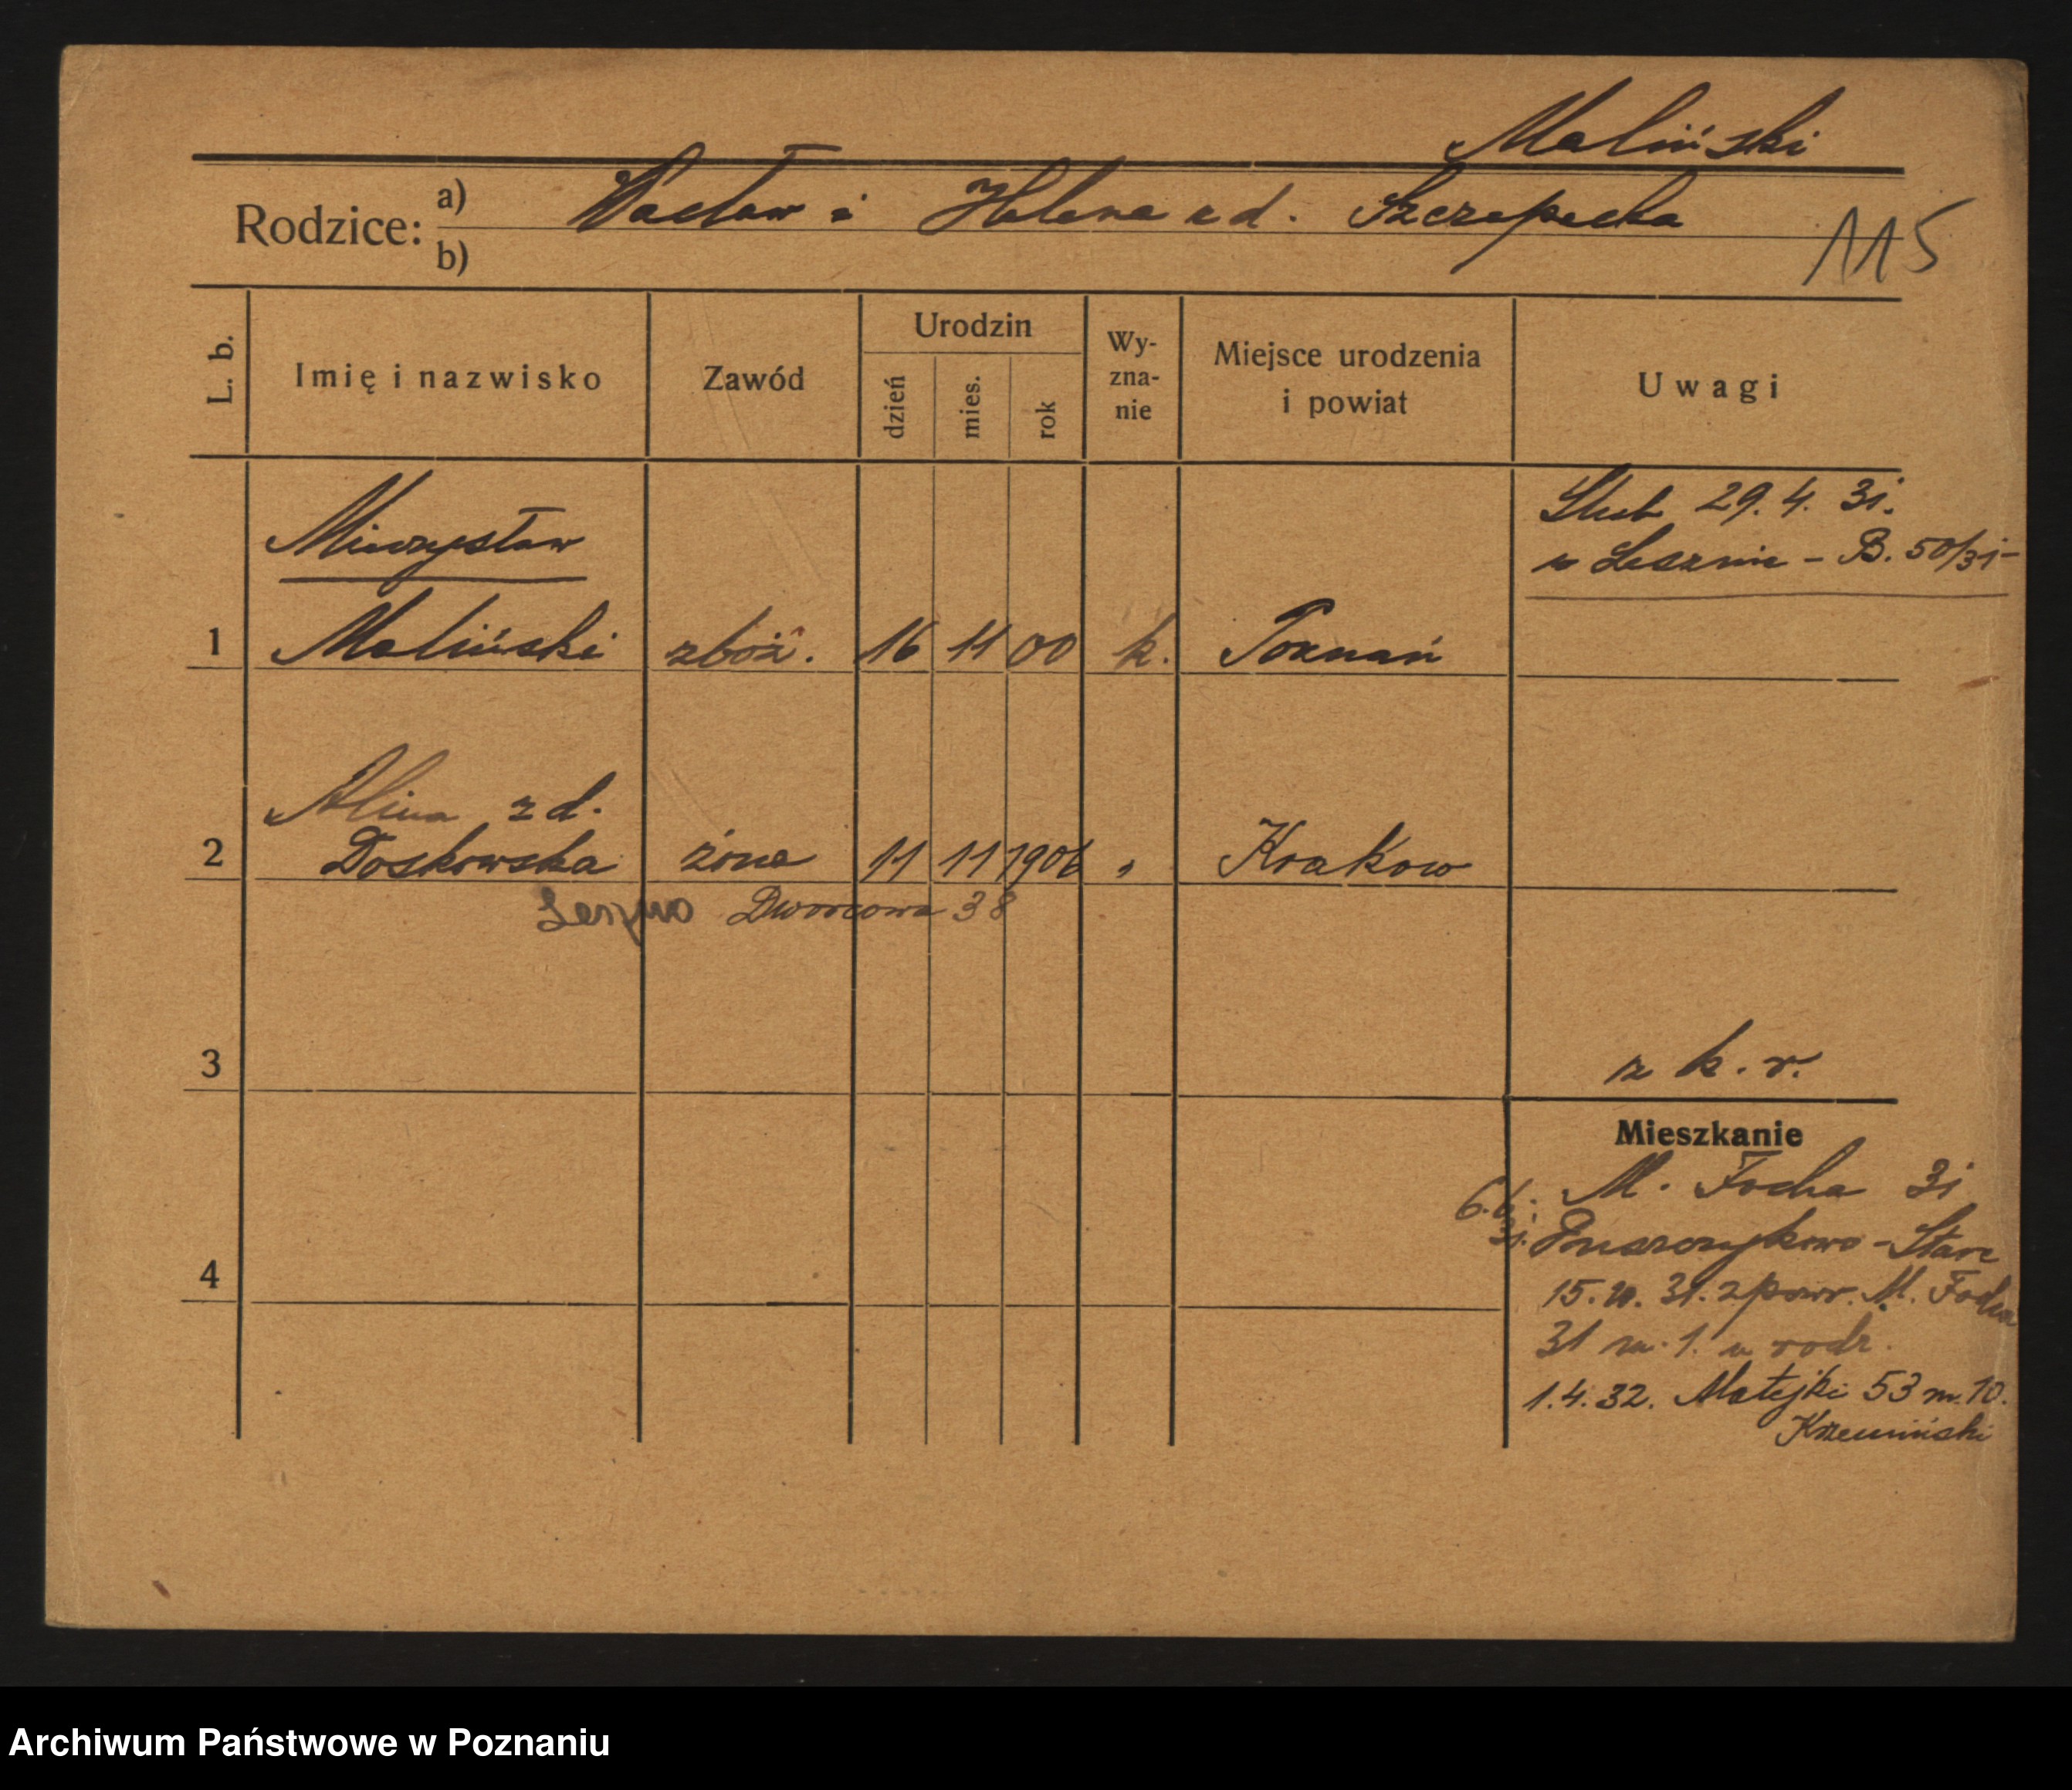 Maliński
Rodzice: a) Wacław i Helena z d. Szczepecka
b)
115
L. b.
Imię i nazwisko
Zawód
Urodzin
dzień
mies.
rok
Wy-
zna-
nie
Miejsce urodzenia
i powiat
Uwagi
Ślub 29.4.31.
w Lesznie - B. 50/31-
Mieczysław
1 Maliński zboż. 16 11 00 k. Poznań
Alina z d.
2 Doskowska żona 11 11 1906 " Krakow
Leszno Dworcowa 38
3
z k. r.
Mieszkanie
M. Focha 31
6.6.
31. Puszczykowo - Stare
15. 10. 31. z powr. M. Focha
31 m. 1. u rodz.
4
1.4.32. Matejki 53 m. 10.
Krzemiński
Archiwum Państwowe w Poznaniu